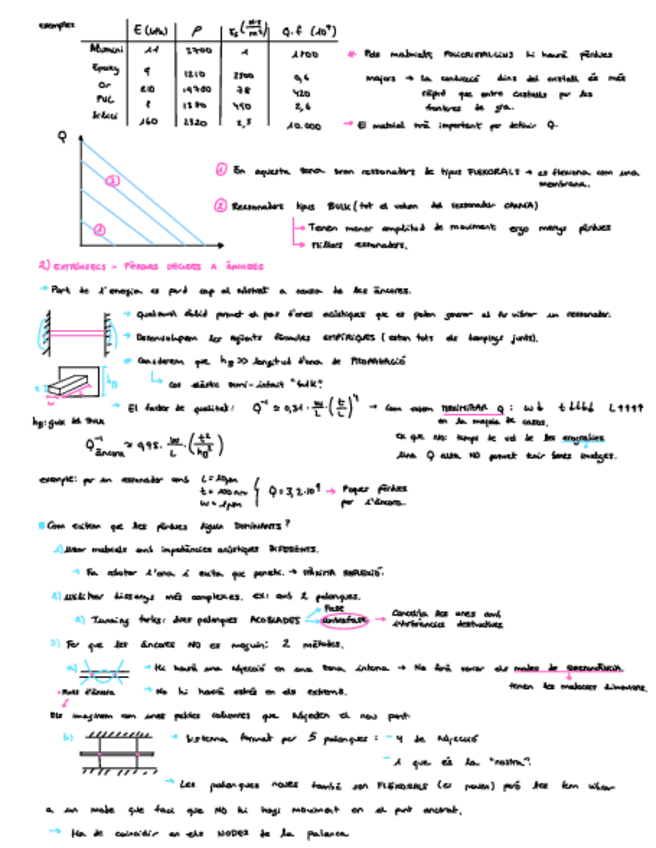 exemples
E (GPa) ρ Q.f (10⁹)
Alumini 2700 1 1700
Epoxy 9 1210 2300 0,6
Or 210 19700 78 420
PVC 1 1370 450 2,6
Silici 160 2320 2,3 10.000
* Pels materials POLICRISTAL·LINS hi haurà pèrdues
majors → La conducció dins del cristall és més
ràpid que entre cristalls per les
fronteres de gra.
→ El material serà important per definir Q.
Q
ρ
① En aquesta zona eren ressonadors de tipus FLEXORALS → es flexiona com una
membrana.
② Ressonadors tipus BULK (tot el volum del ressonador CANVIA)
→ Tenen menor amplitud de moviment ergo menys pèrdues
→ Millors ressonadors.
2) EXTRÍNSECS - PÈRDUES DEGUDES A ÀNCORES
→ Part de l'energia es perd cap al substrat a causa de les àncores.
→ Qualsevol sòlid permet el pas d'ones acústiques que es poden generar al fer vibrar un ressonador.
→ Desenvolupem les següents fórmules EMPÍRIQUES (estan tots els dampings junts).
→ Considerem que h_B >> longitud d'ona de PROPAGACIÓ
→ Cos elàstic semi-infinit "bulk".
→ El factor de qualitat: Q⁻¹ ≃ 0,31 · w/L · (t/L)⁴ → Com volem MAXIMITZAR Q: w↓ t↓↓↓↓ L↑↑↑↑
en la majoria de casos.
h_B: gruix del bulk
Q⁻¹ àncora ≃ 0,95 · w/L · (t²/h_B²)
Una Q alta NO permet tenir bones imatges.
exemple: per un ressonador amb L = 10μm
t = 100 nm
w = 1μm
Q = 3,2·10⁴ → Poques pèrdues
per l'àncora.
Com evitem que les pèrdues siguin DOMINANTS?
1) Usar materials amb impedàncies acústiques DIFERENTS.
→ Fa rebotar l'ona i evita que penetri. → MÀXIMA REFLEXIÓ.
2) Utilitzar dissenys més complexes. ex: amb 2 palanques.
a) Tunning forks: dues palanques ACOBLADES
Fase
antifase → Cancel·la les ones amb
interferències destructives
3) Fer que les àncores NO es moguin: 2 mètodes.
a) → Hi haurà una subjecció en una zona interna → No farà variar els modes de RESSONÀNCIA
→ No hi haurà estrès en els extrems.
tenen les mateixes dimensions.
• Punts d'àncora
Els imaginem com unes petites columnes que subjecten el nou pont
b) → Sistema format per 5 palanques: - 4 de subjecció
- 1 que és la "nostra".
→ Les palanques noves també són FLEXORALS (es mouen) però les fem vibrar
a un mode que faci que NO hi hagi moviment en el punt ancorat.
→ Ha de coincidir en els NODES de la palanca